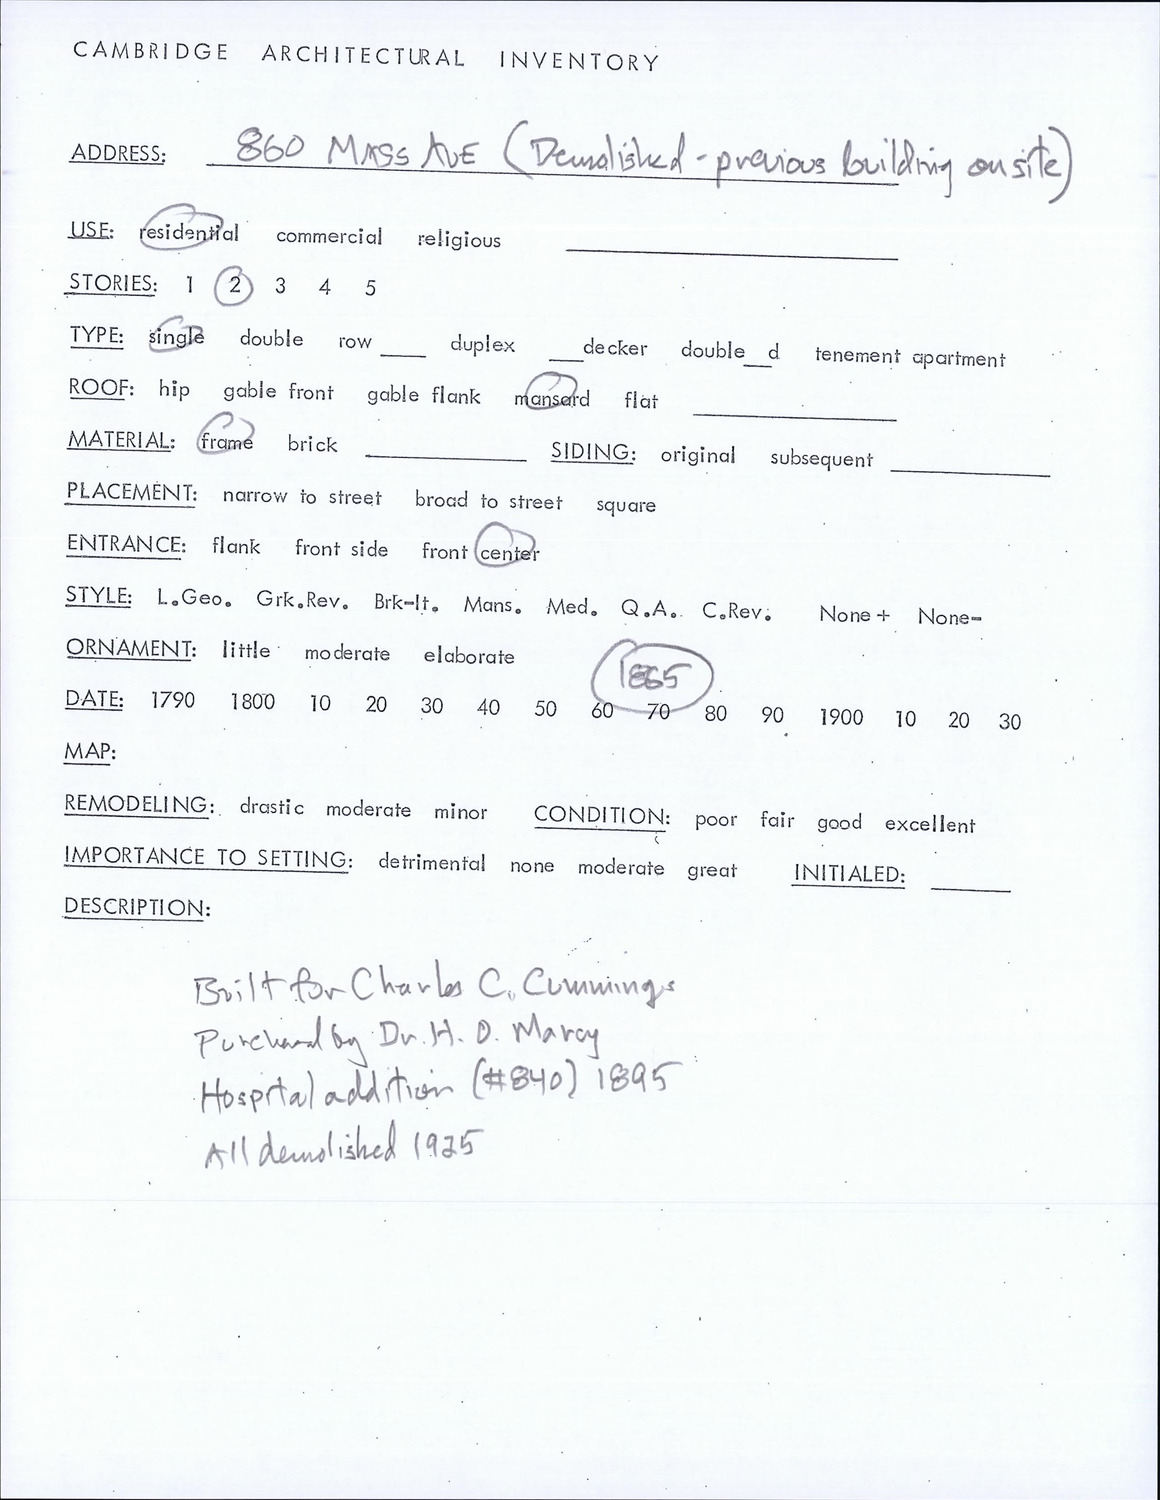 CAMBRIDGE ARCHITECTURAL INVENTORY
ADDRESS: 860 MASS AVE (Demolished - previous building on site)
USE: residential commercial religious
STORIES: 1 2 3 4 5
TYPE: single double row ____ duplex ___decker double__d tenement apartment
ROOF: hip gable front gable flank mansard flat
MATERIAL: frame brick ____ SIDING: original subsequent ____
PLACEMENT: narrow to street broad to street square
ENTRANCE: flank front side front center
STYLE: L.Geo. Grk.Rev. Brk-It. Mans. Med. Q.A. C.Rev. None+ None-
ORNAMENT: little moderate elaborate
1865
DATE: 1790 1800 10 20 30 40 50 60 70 80 90 1900 10 20 30
MAP:
REMODELING: drastic moderate minor CONDITION: poor fair good excellent
IMPORTANCE TO SETTING: detrimental none moderate great INITIALED: ____
DESCRIPTION:
Built for Charles C. Cummings
Purchased by Dr. H. O. Marcy
Hospital addition (#840) 1895
All demolished 1925